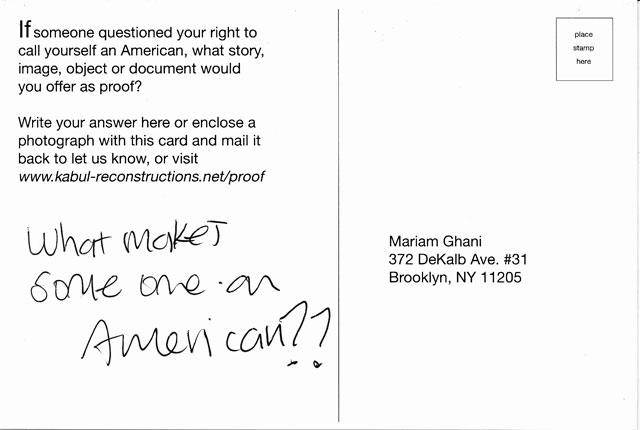 If someone questioned your right to
call yourself an American, what story,
image, object or document would
you offer as proof?
Write your answer here or enclose a
photograph with this card and mail it
back to let us know, or visit
www.kabul-reconstructions.net/proof
What makes
some one an
American??
place
stamp
here
Mariam Ghani
372 DeKalb Ave. #31
Brooklyn, NY 11205